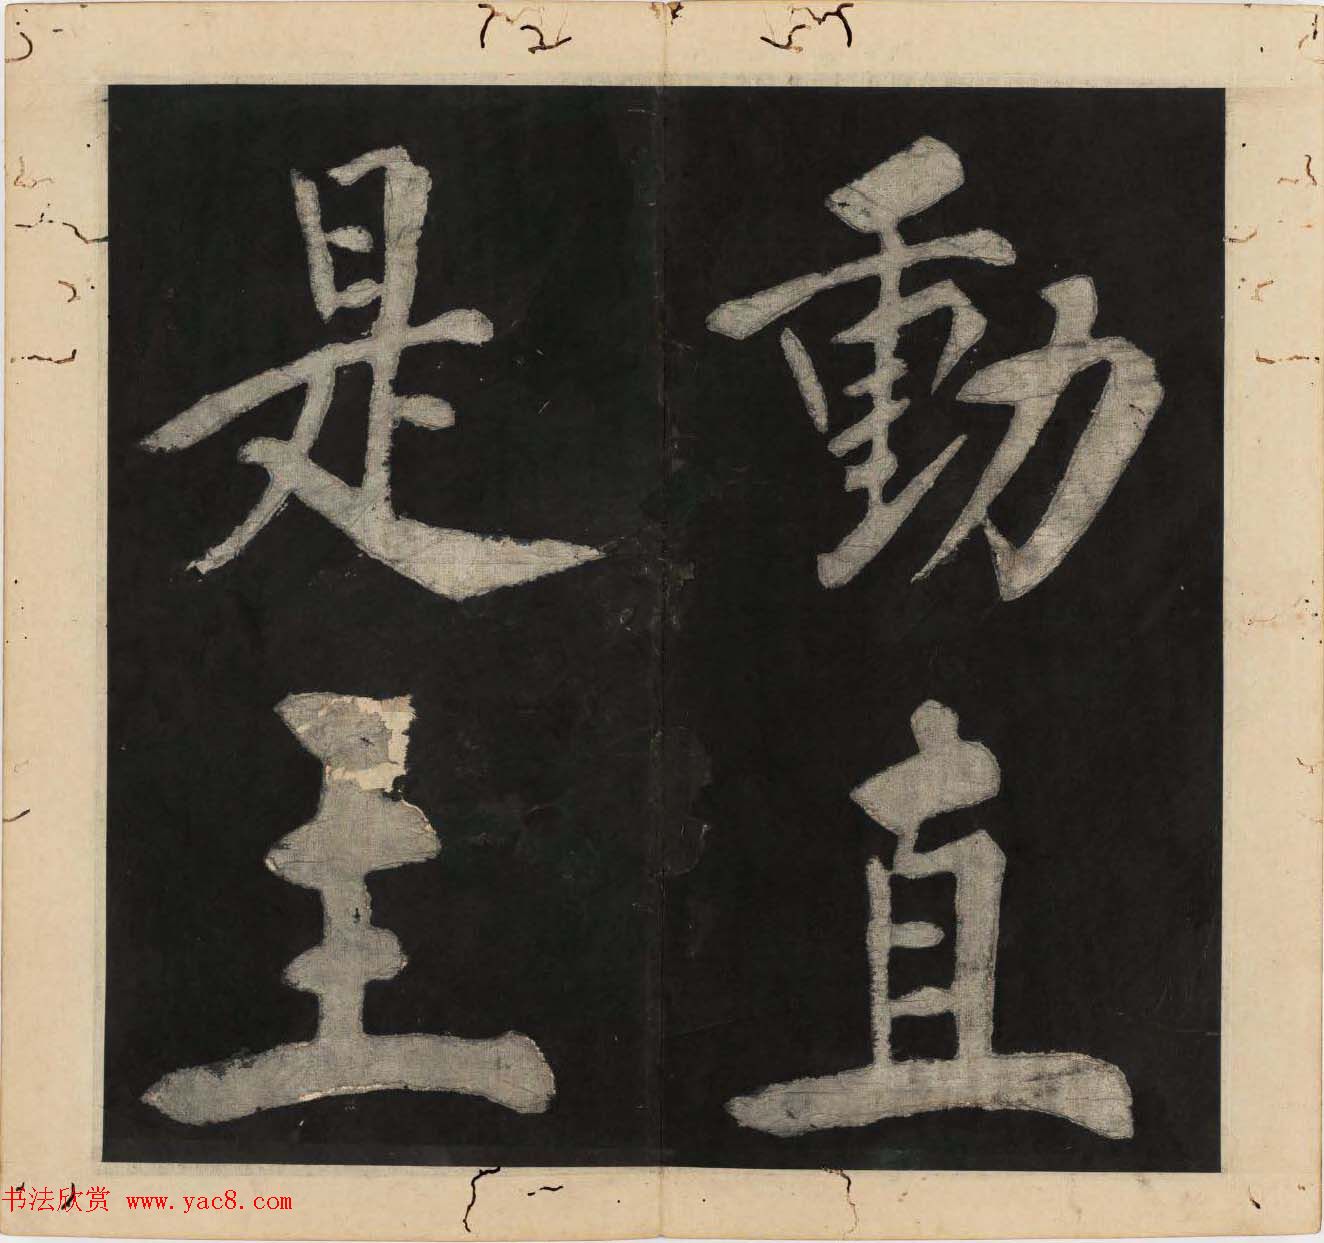 動直
是主
书法欣赏 www.yac8.com